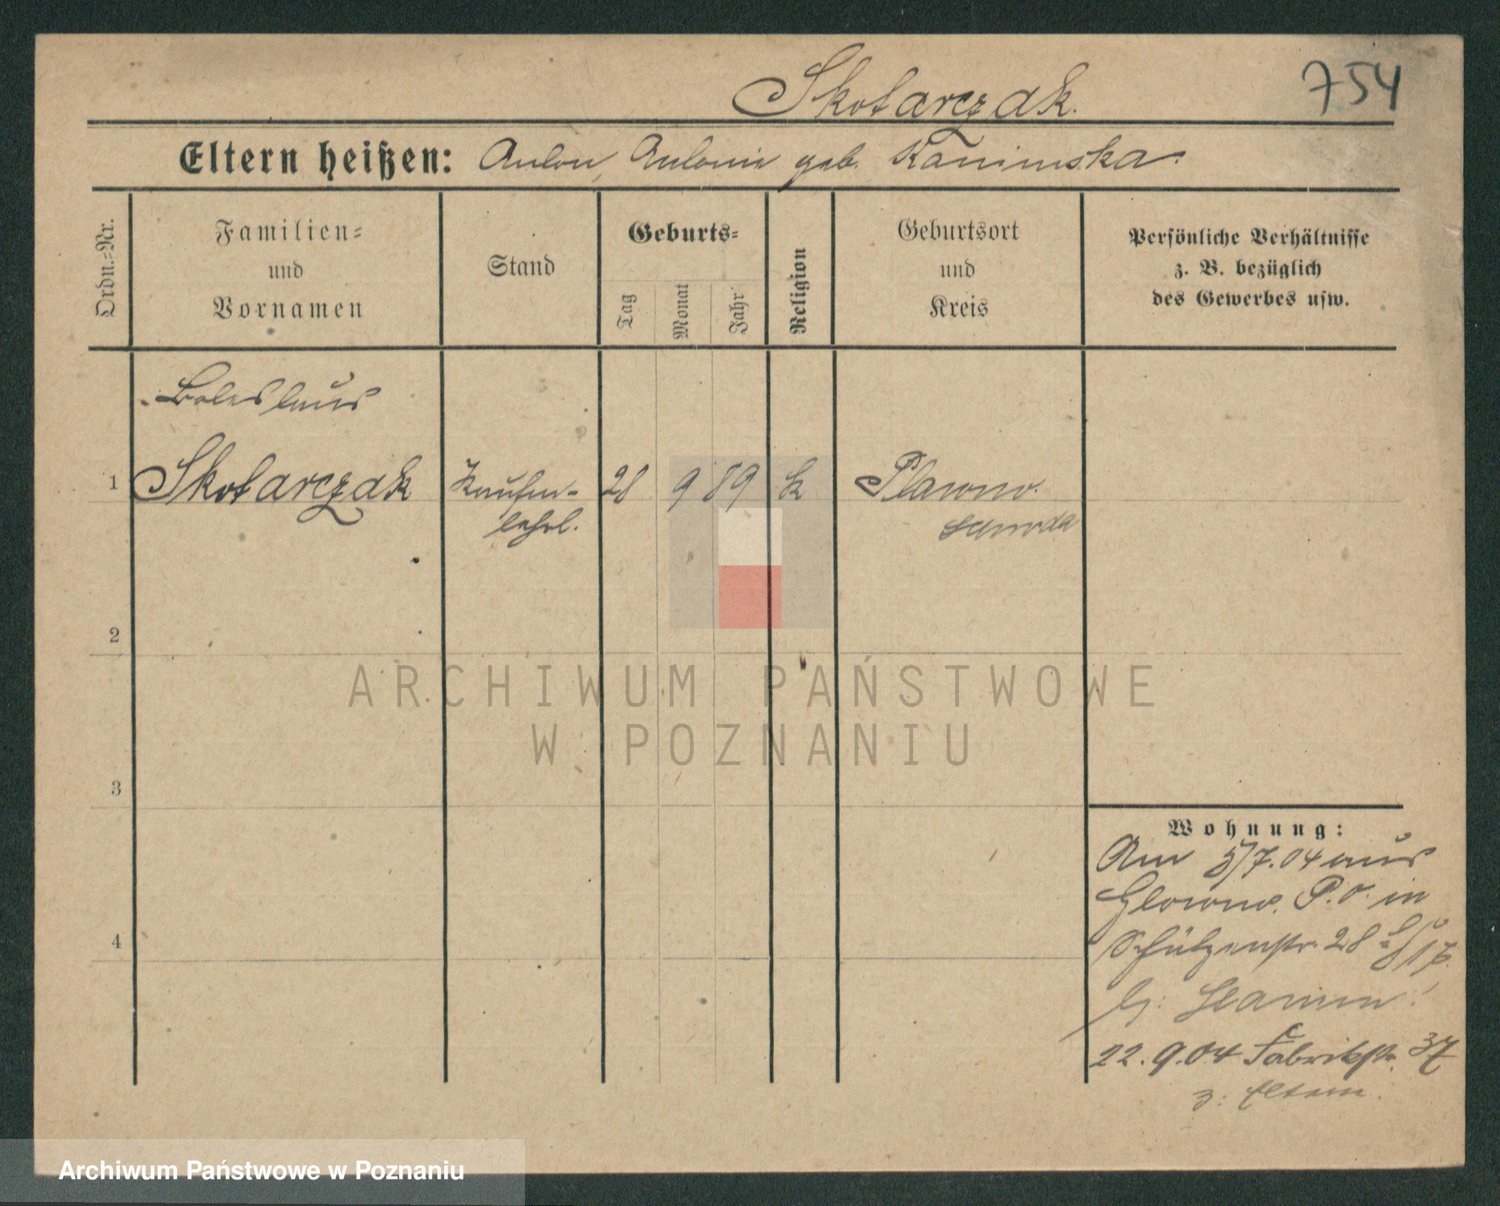 Skotarczak. 754
Eltern heißen: Anton, Antonie geb. Kaminska.
Ordn.-Nr.
Familien-
und
Vornamen
Stand
Geburts-
Tag
Monat
Jahr
Religion
Geburtsort
und
Kreis
Persönliche Verhältnisse
z. B. bezüglich
des Gewerbes usw.
Boleslaus
1 Skotarczak Kaufm- 28 9 89 k Plawno
lehrl. Schroda
2
3
4
Wohnung:
Am 5/7.04 aus
Glowno. P.O. in
Schützenstr. 28
b:
22.9.04 Fabrikstr. 37
z: Eltern.
ARCHIWUM PAŃSTWOWE
W POZNANIU
Archiwum Państwowe w Poznaniu